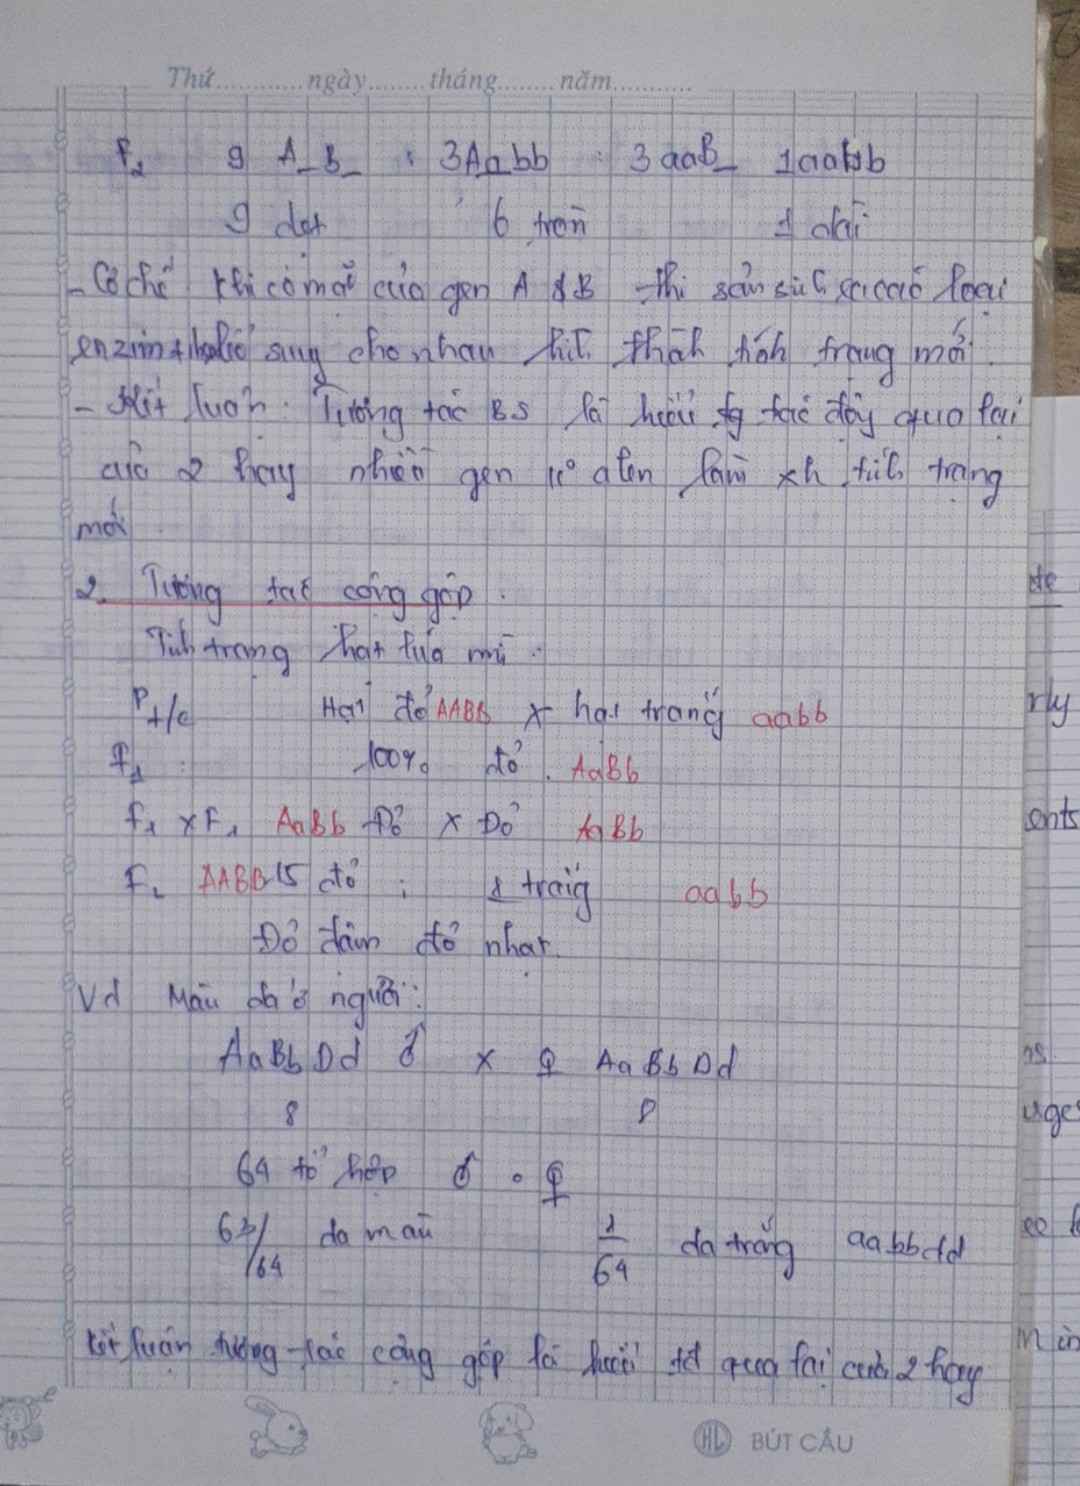 Thứ............ngày........tháng........năm............
F2 9 A_B_ : 3Aabb : 3 aaB_ 1aabb
9 dẹt 6 tròn 1 dài
- Cơ chế khi có mặt của gen A & B thì sản các loại
enzim sung cho nhau trạng mới
- Kết luận: Tương tác BS là hiện tác động qua lại
của 2 hay nhiều gen alen làm xh tính trạng
mới
2. Tương tác cộng gộp.
Tính trạng hạt lúa mì.
Pt/c Hạt đỏ AABB x hạt trắng aabb
F1 : 100% đỏ. AaBb
F1 x F1 AaBb Đỏ x Đỏ AaBb
F2 AABB 15 đỏ : 1 trắng aabb
Đỏ đậm đỏ nhạt.
Vd Màu da ở người:
AaBbDd ♂ x ♀ AaBbDd
8 8
64 tổ hợp ♂ . ♀
63/64 da màu 1/64 da trắng aabbdd
Kết luận tương tác cộng gộp là qua lại của 2 hay
HL BÚT CÂU